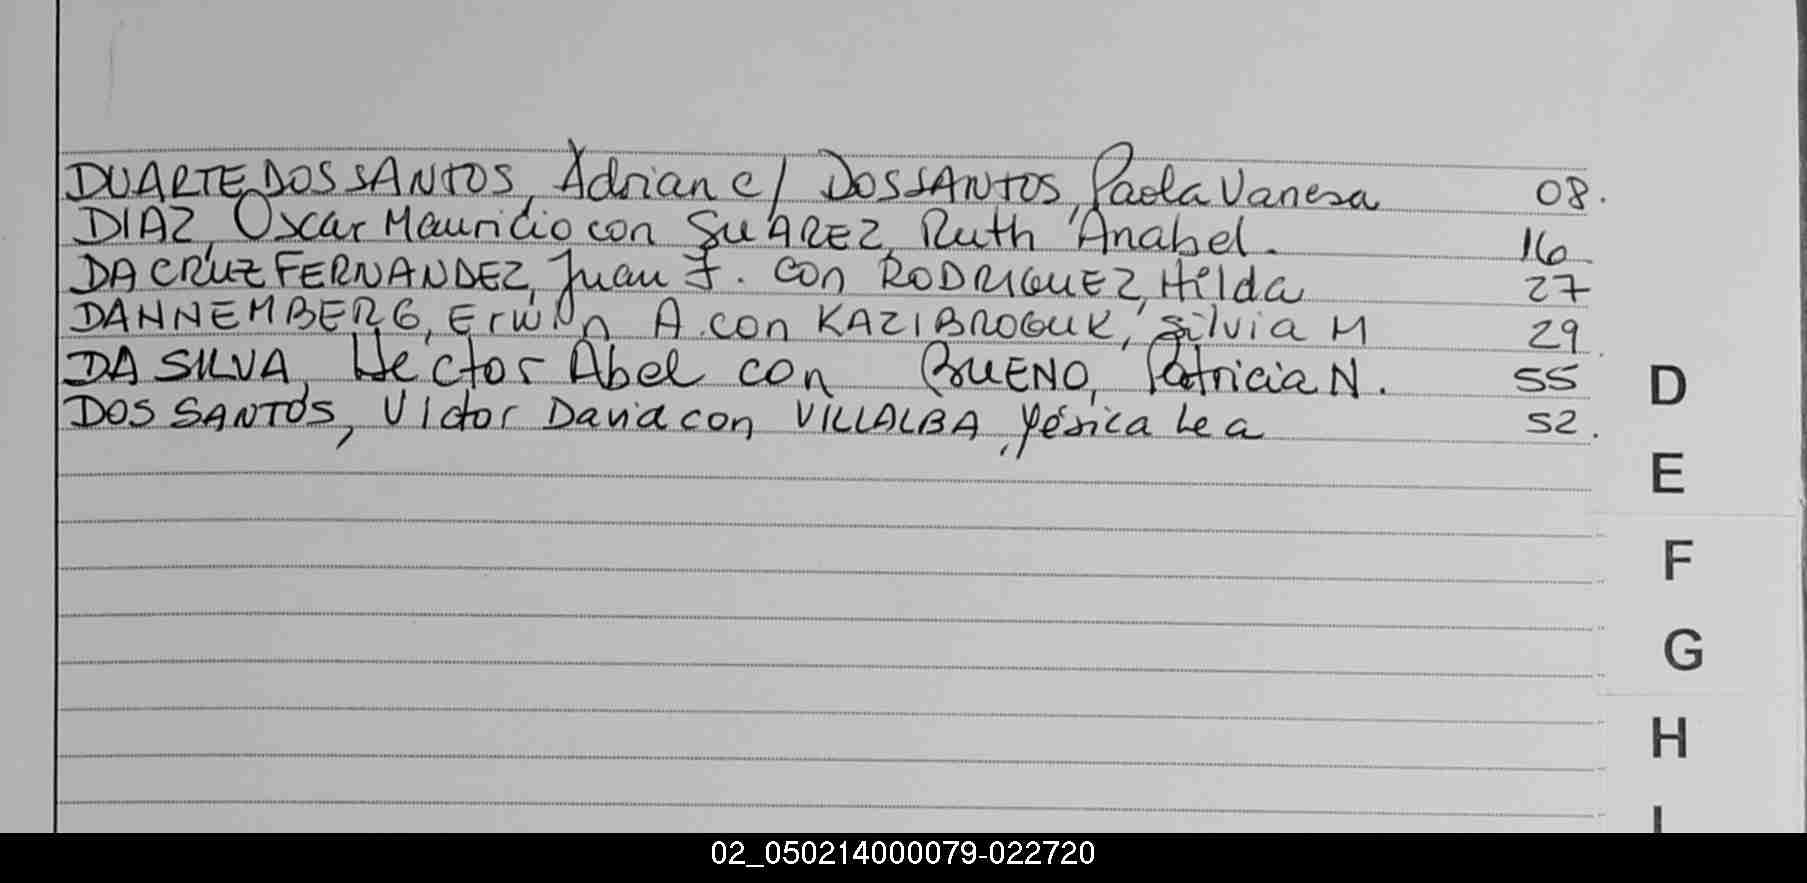 DUARTE DOS SANTOS, Adrian c/ DOS SANTOS, Paola Vanesa 08.
DIAZ, Oscar Mauricio con SUAREZ, Ruth Anabel. 16
DA CRUZ FERNANDEZ, Juan F. con RODRIGUEZ, Hilda 27
DANNEMBERG, Erwin A. con KAZIBROGUK, Silvia M 29
DA SILVA, Hector Abel con BUENO, Patricia N. 55
DOS SANTOS, Victor David con VILLALBA, Yésica Lea 52.
D
E
F
G
H
I
02_050214000079-022720